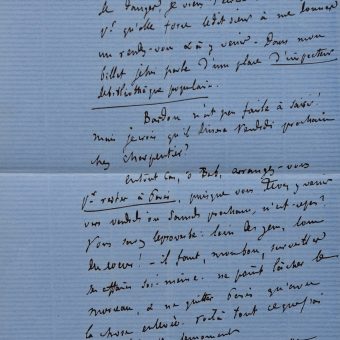 le danger, je viens d'écrire
pr qu'elle force ledit sieur à me donner
un rendez-vous & à y venir. Dans mon
billet je lui parle d'une place d'inspecteur
des bibliothèques populaires.
Bardoux n'est pas facile à saisir!
mais je crois qu'il dînera Vendredi prochain
chez Charpentier?
En tout cas, ô Bab, arrangez-vous
pr rester à Paris, puisque vous devez y venir
vers vendredi ou Samedi prochain, n'est-ce pas?
Vous me l'approuvez: loin des yeux, loin
du cœur! – il faut, mon bon, surveiller
ses affaires soi-même. ne point lâcher le
morceau, & ne quitter Paris qu'avec
la chose enlevée. Voilà tout ce que je